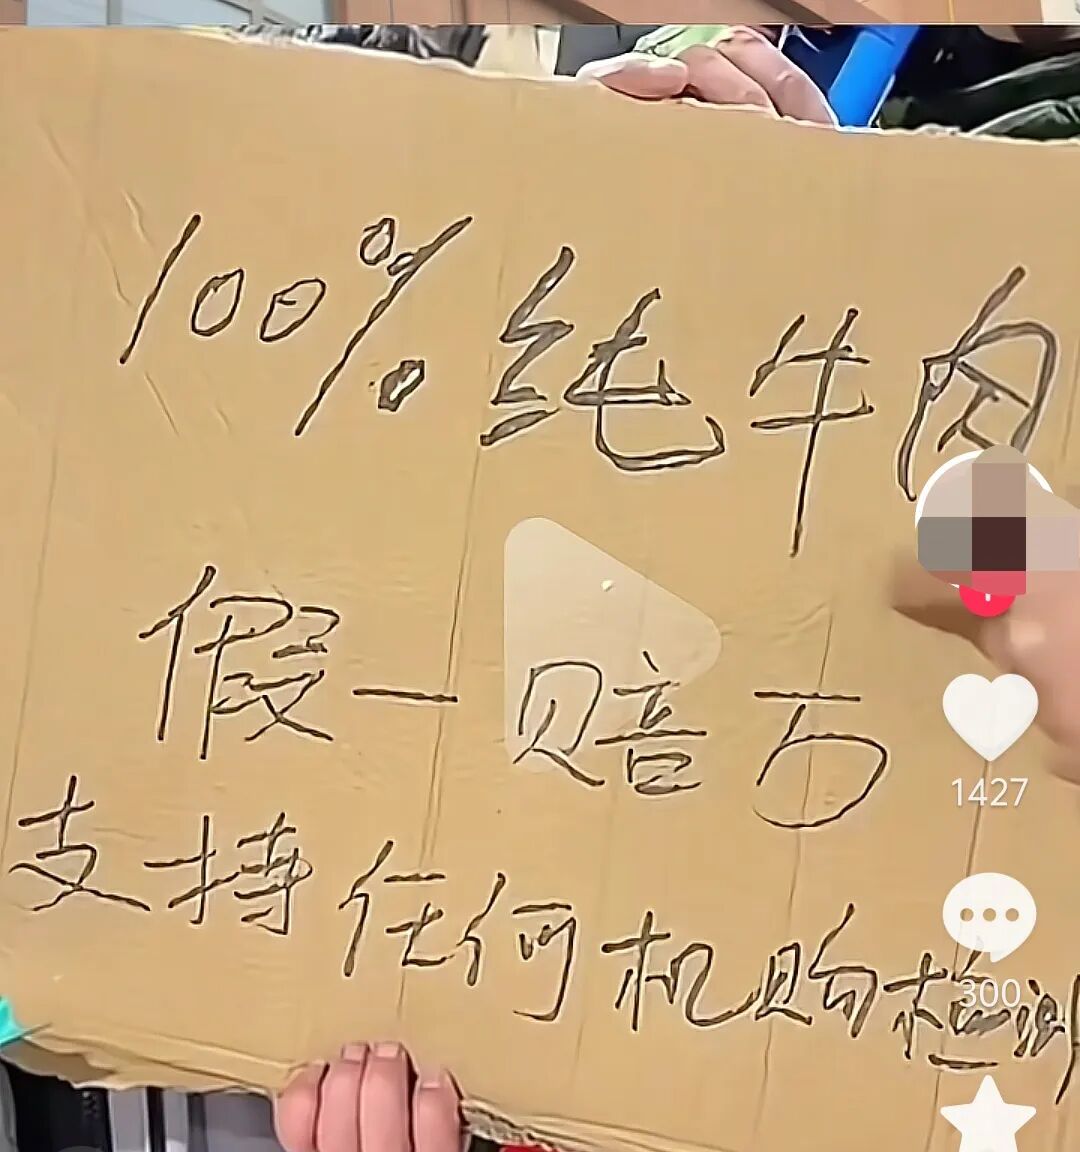 100%纯牛肉
假一赔万
支持任何机购检测
1427
300